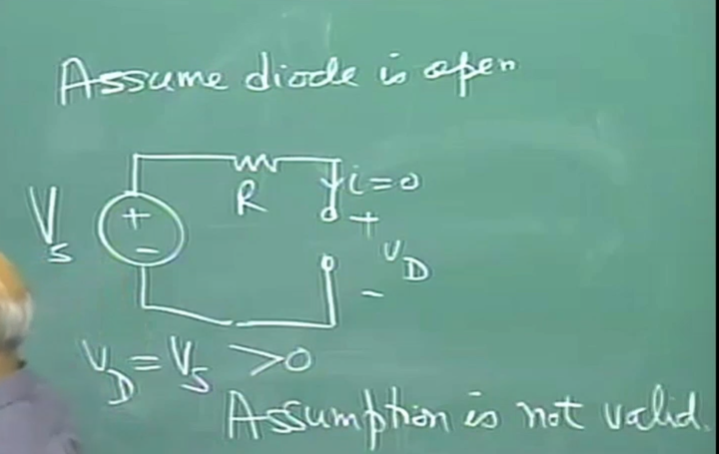 Assume diode is open
R
i=0
+
V_s
+
-
v_D
-
v_D = V_s >0
Assumption is not valid.